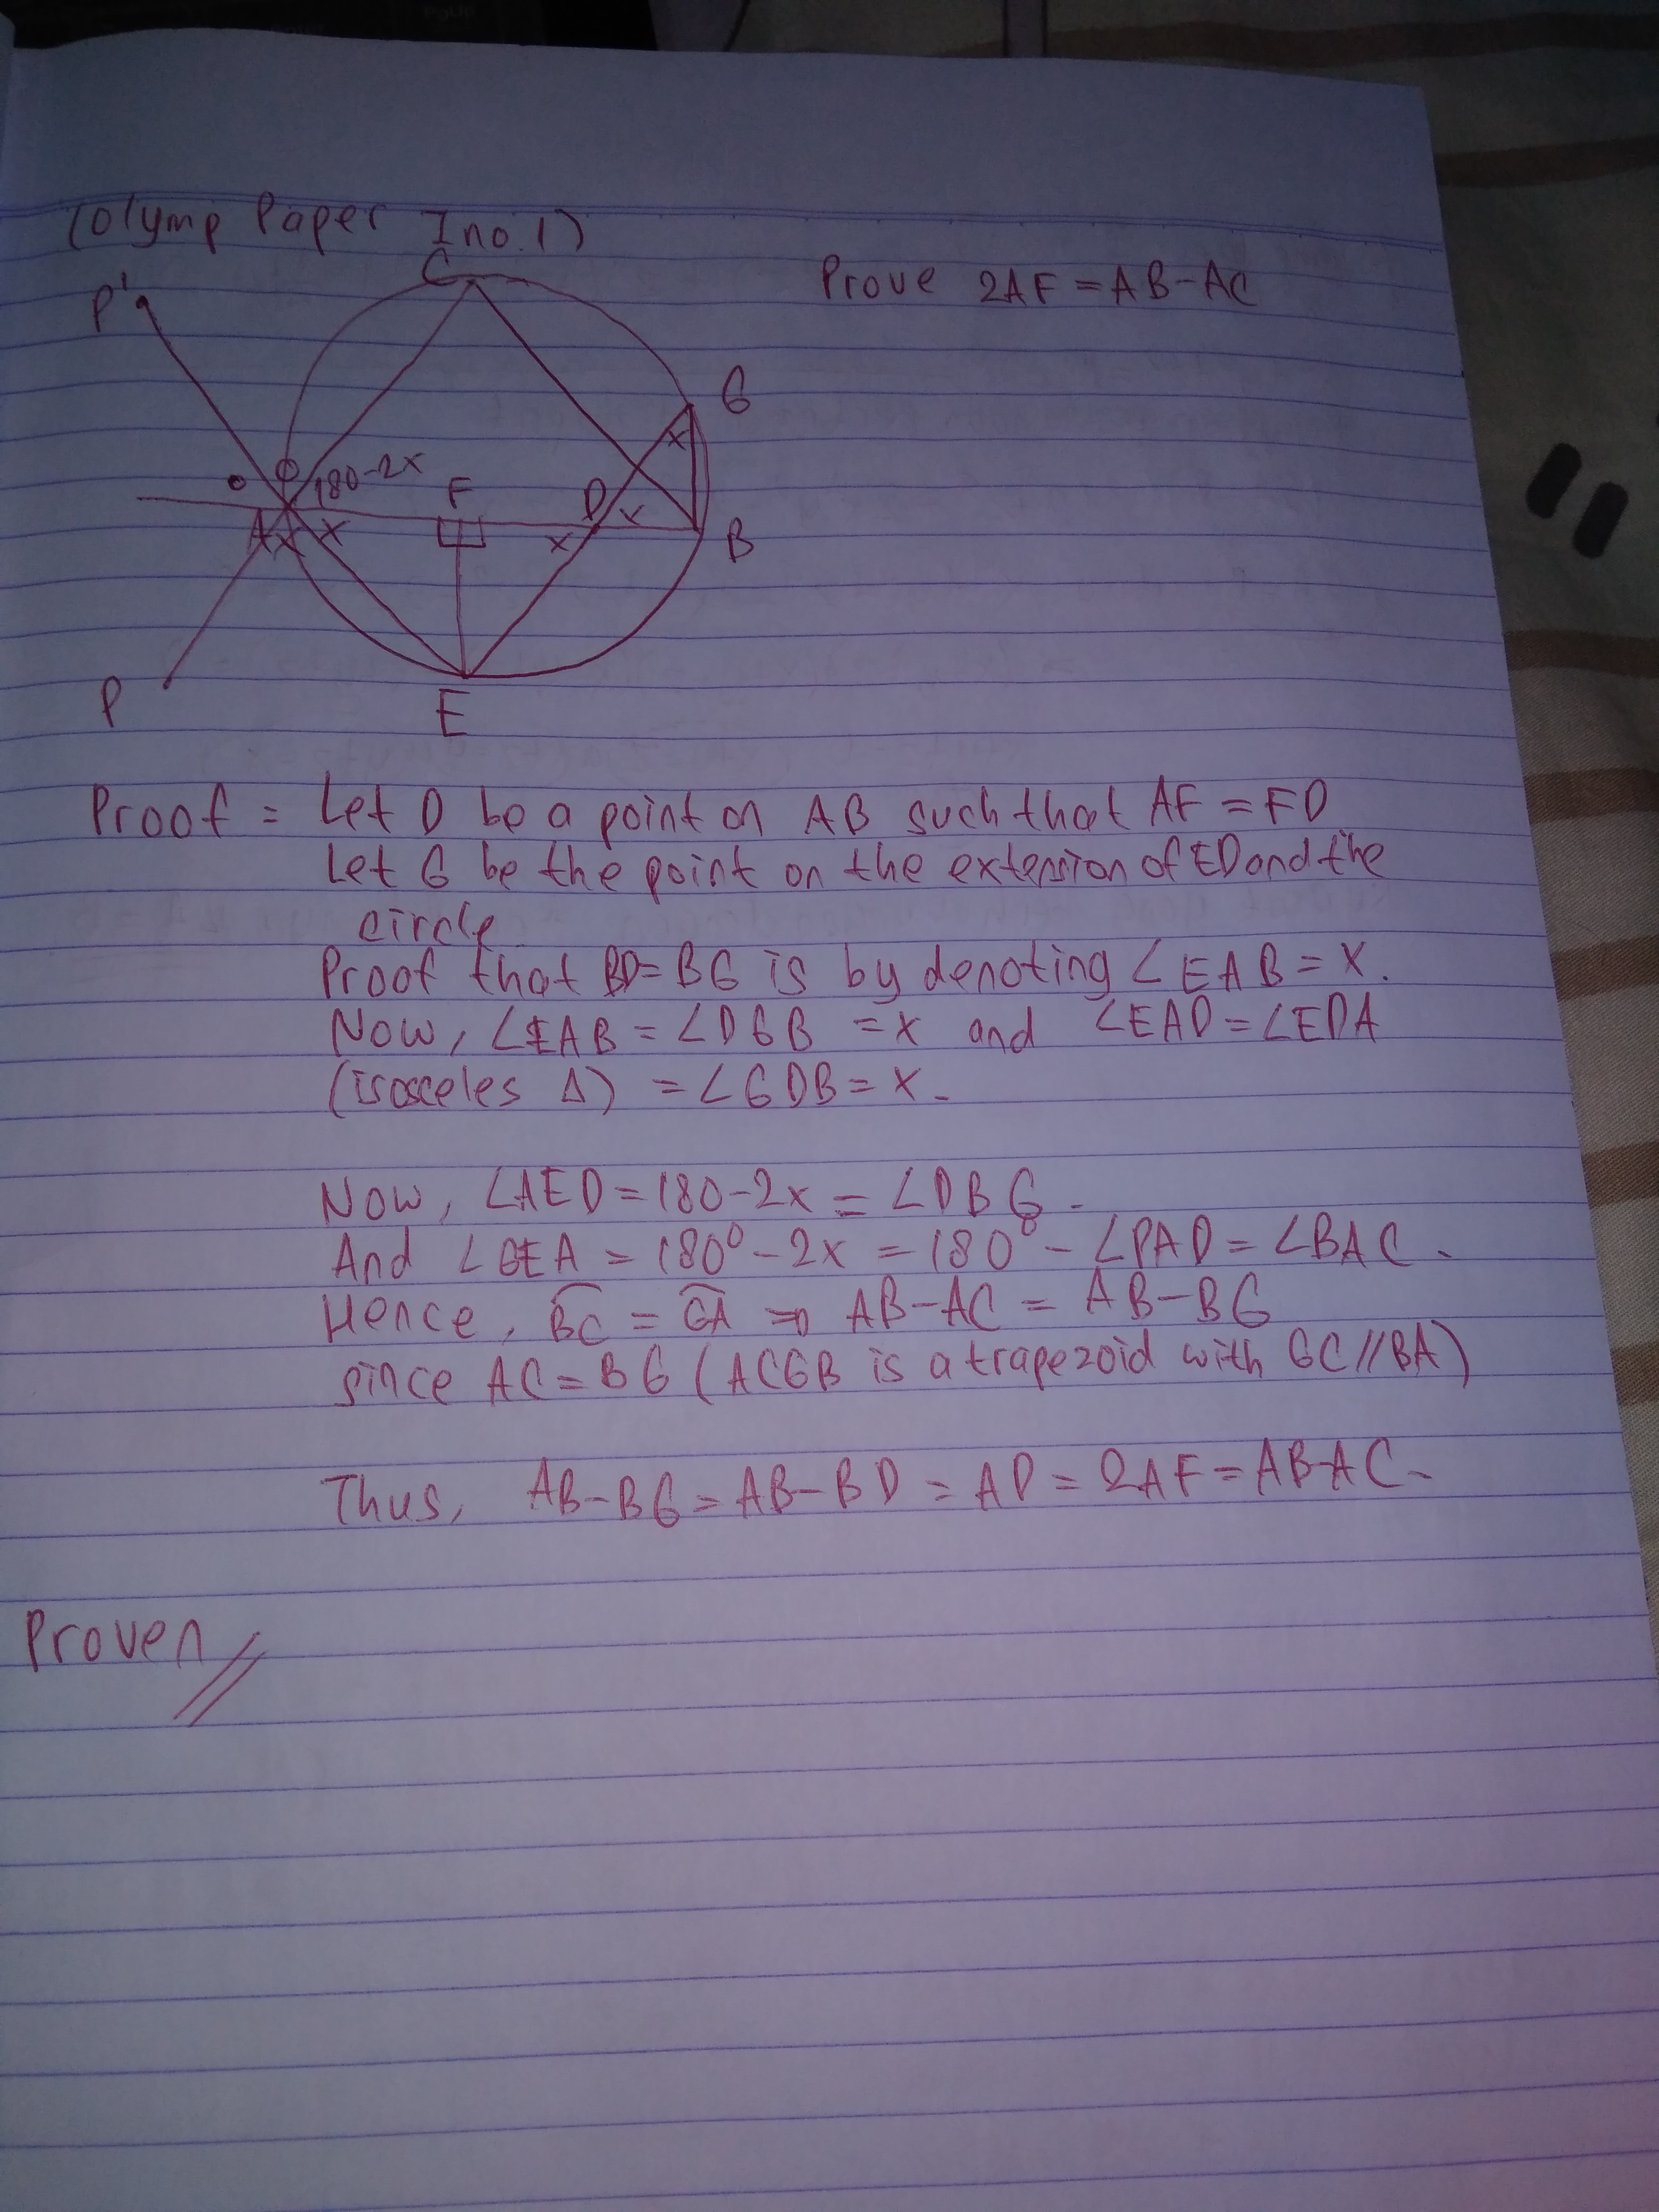 (Olymp Paper I no.1)
Prove 2AF = AB-AC
C
P'
G
x
180-2x
F
D
x
A x x
x
B
P
E
Proof = Let D be a point on AB such that AF = FD
Let G be the point on the extension of ED and the
circle
Proof that BD=BG is by denoting ∠EAB = x.
Now, ∠EAB = ∠DGB = x and ∠EAD = ∠EDA
(isosceles Δ) = ∠GDB = x.
Now, ∠AED = 180-2x = ∠DBG.
And ∠GEA = 180°-2x = 180° - ∠PAD = ∠BAC.
Hence, BC = GA ⇒ AB-AC = AB-BG
since AC = BG (ACGB is a trapezoid with GC//BA)
Thus, AB-BG = AB-BD = AD = 2AF = AB-AC-
Proven